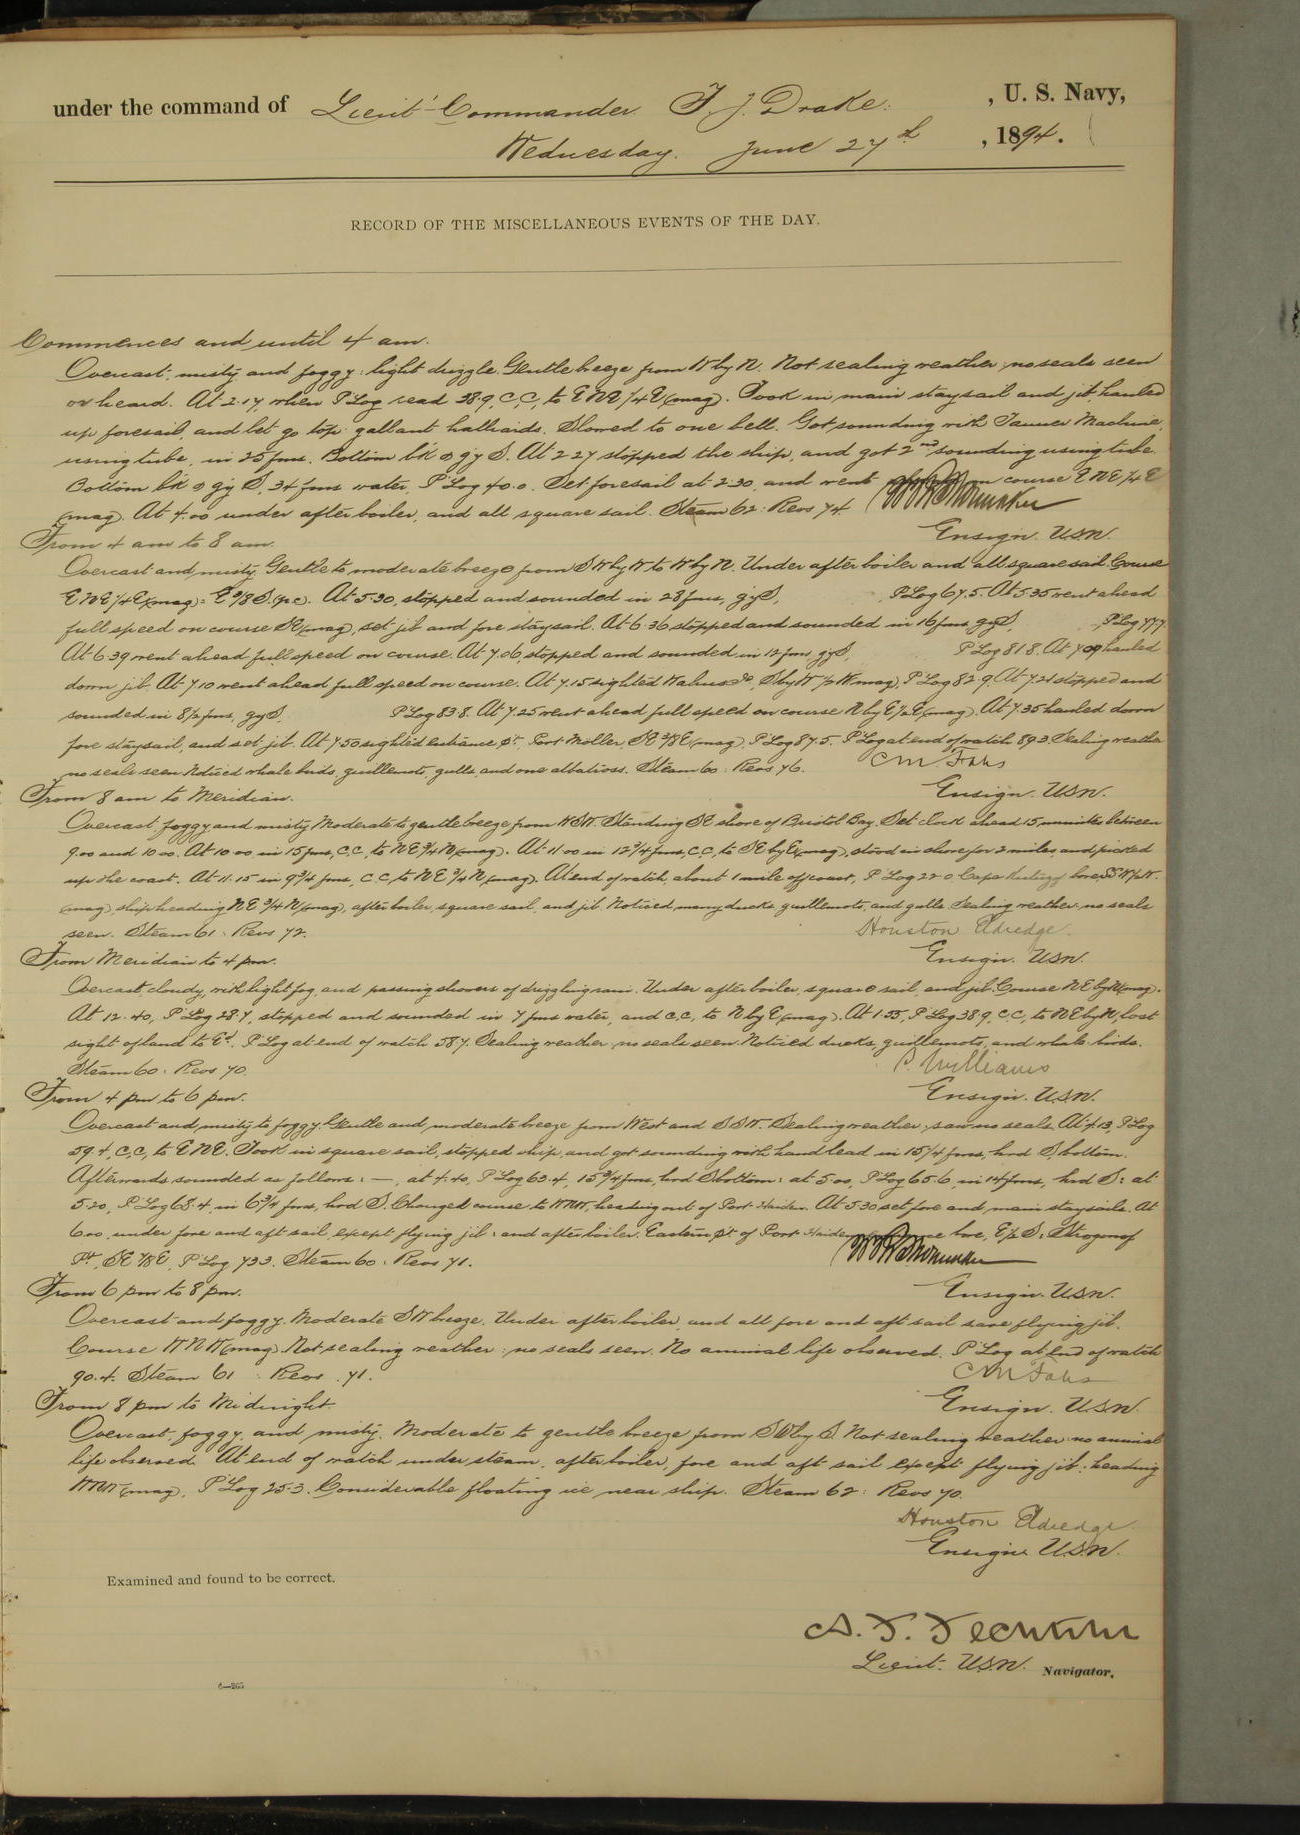 under the command of Lieut-Commander F. J. Drake. , U. S. Navy,
Wednesday. June 27th , 1894.
RECORD OF THE MISCELLANEOUS EVENTS OF THE DAY.
Commences and until 4 am.
Overcast, misty and foggy: light drizzle. Gentle breeze from W by N. Not sealing weather; no seals seen
or heard. At 2.17, when P'Log read 38.9, C.C. to ENE 1/4 E (mag). Took in main staysail and jib, hauled
up foresail, and let go top gallant halliards. Slowed to one bell. Got sounding with Tanner Machine,
using tube, in 25 fms. Bottom bk & gy S. At 2.27 stopped the ship, and got 2nd sounding using tube.
Bottom bk & gy S, 34 fms water, P'Log 40.0. Set foresail at 2.30, and went on course ENE 1/4 E
(mag). At 4.00 under after boiler, and all square sail. Steam 62: Revs 74
W.W.R. Shoemaker
From 4 am to 8 am.
Ensign. U.S.N.
Overcast and misty. Gentle to moderate breeze from SW by W to W by N. Under after boiler and all square sail. Course
ENE 1/4 E (mag) = E 3/8 S. (p.c.). At 5.30, stopped and sounded in 28 fms, gy S, P'Log 67.5. At 5.35 went ahead
full speed on course SE (mag), set jib and fore staysail. At 6.36 stopped and sounded in 16 fms, gy S, P'Log 77.7.
At 6.39 went ahead full speed on course. At 7.06, stopped and sounded in 12 fms gy S, P'Log 81.8. At 7.09 hauled
down jib. At 7.10 went ahead full speed on course. At 7.15 sighted Walrus Id, S by W 1/2 W (mag), P'Log 82.9. At 7.21 stopped and
sounded in 8 1/2 fms, gy S. P'Log 83.8. At 7.25 went ahead full speed on course N by E 1/2 E (mag). At 7.35 hauled down
fore staysail, and set jib. At 7.50 sighted entrance pt. Port Moller, SE 3/8 E (mag). P'Log 87.5. P'Log at end of watch 89.3. Sealing weather
no seals seen. Noticed whale birds, guillemots, gulls, and one albatross. Steam 60: Revs 76.
C M Fahs
From 8 am to Meridian.
Ensign. U.S.N.
Overcast, foggy and misty. Moderate to gentle breeze from WSW. Standing SE shore of Bristol Bay. Set clock ahead 15 minutes between
9.00 and 10.00. At 10.00 in 15 fms, C.C. to NE 3/4 N (mag). At 11.00 in 12 3/4 fms, C.C. to SE by E (mag), stood in shore for 2 miles, and picked
up the coast. At 11.15 in 9 3/4 fms, C.C. to NE 3/4 N (mag). At end of watch, about 1 mile off coast, P'Log 22.0 Cape Kutuzof bore, S 1/2 W.
(mag), ship heading NE 3/4 N (mag), after boiler, square sail, and jib. Noticed many ducks, guillemots, and gulls. Sealing weather: no seals
seen. Steam 61: Revs 72.
Houston Eldredge.
From Meridian to 4 pm.
Ensign. U.S.N.
Overcast, cloudy, with light fog, and passing showers of drizzling rain. Under after boiler, square sail, and jib. Course NE by N (mag).
At 12.40, P'Log 28.7, stopped and sounded in 7 fms water, and C.C. to N by E (mag). At 1.55, P'Log 38.9, C.C. to NE by N, lost
sight of land to Ed. P'Log at end of watch 58.7. Sealing weather: no seals seen. Noticed ducks, guillemots, and whale birds.
Steam 60: Revs 70.
C. Williams
From 4 pm to 6 pm.
Ensign. U.S.N.
Overcast and misty to foggy. Gentle and moderate breeze from West and SSW. Sealing weather, saw no seals. At 4.13, P'Log
59.4, C.C. to ENE. Took in square sail, stopped ship, and got sounding with hand lead in 15 1/4 fms, hrd S, bottom.
Afterwards sounded as follows: — at 4.40, P'Log 63.4, 15 3/4 fms, hrd S bottom: at 5.00, P'Log 65.6 in 14 fms, hrd S: at
5.20, P'Log 68.4, in 6 3/4 fms, hrd S. Changed course to WNW, heading out of Port Haiden. At 5.30 set fore and main staysails. At
6.00, under fore and aft sail, except flying jib: and after boiler. Eastern pt. of Port Haiden bore, E 1/2 S: Strogonof
Pt, SE 7/8 E, P'Log 73.3. Steam 60: Revs 71.
W.W.R. Shoemaker
From 6 pm to 8 pm.
Ensign. U.S.N.
Overcast and foggy. Moderate SW breeze. Under after boiler, and all fore and aft sail save flying jib.
Course WNW (mag). Not sealing weather: no seals seen. No animal life observed. P'Log at end of watch
90.4. Steam 61: Revs 71.
C M Fahs
From 8 pm to Midnight
Ensign. U.S.N.
Overcast, foggy, and misty. Moderate to gentle breeze from SW by S. Not sealing weather: no animal
life observed. At end of watch under steam, after boiler, fore and aft sail except flying jib: heading
WNW (mag), P'Log 25.3. Considerable floating ice near ship. Steam 62: Revs 70.
Houston Eldredge
Ensign U.S.N.
Examined and found to be correct.
A. F. Fechteler
Lieut. U.S.N. Navigator.
6—265